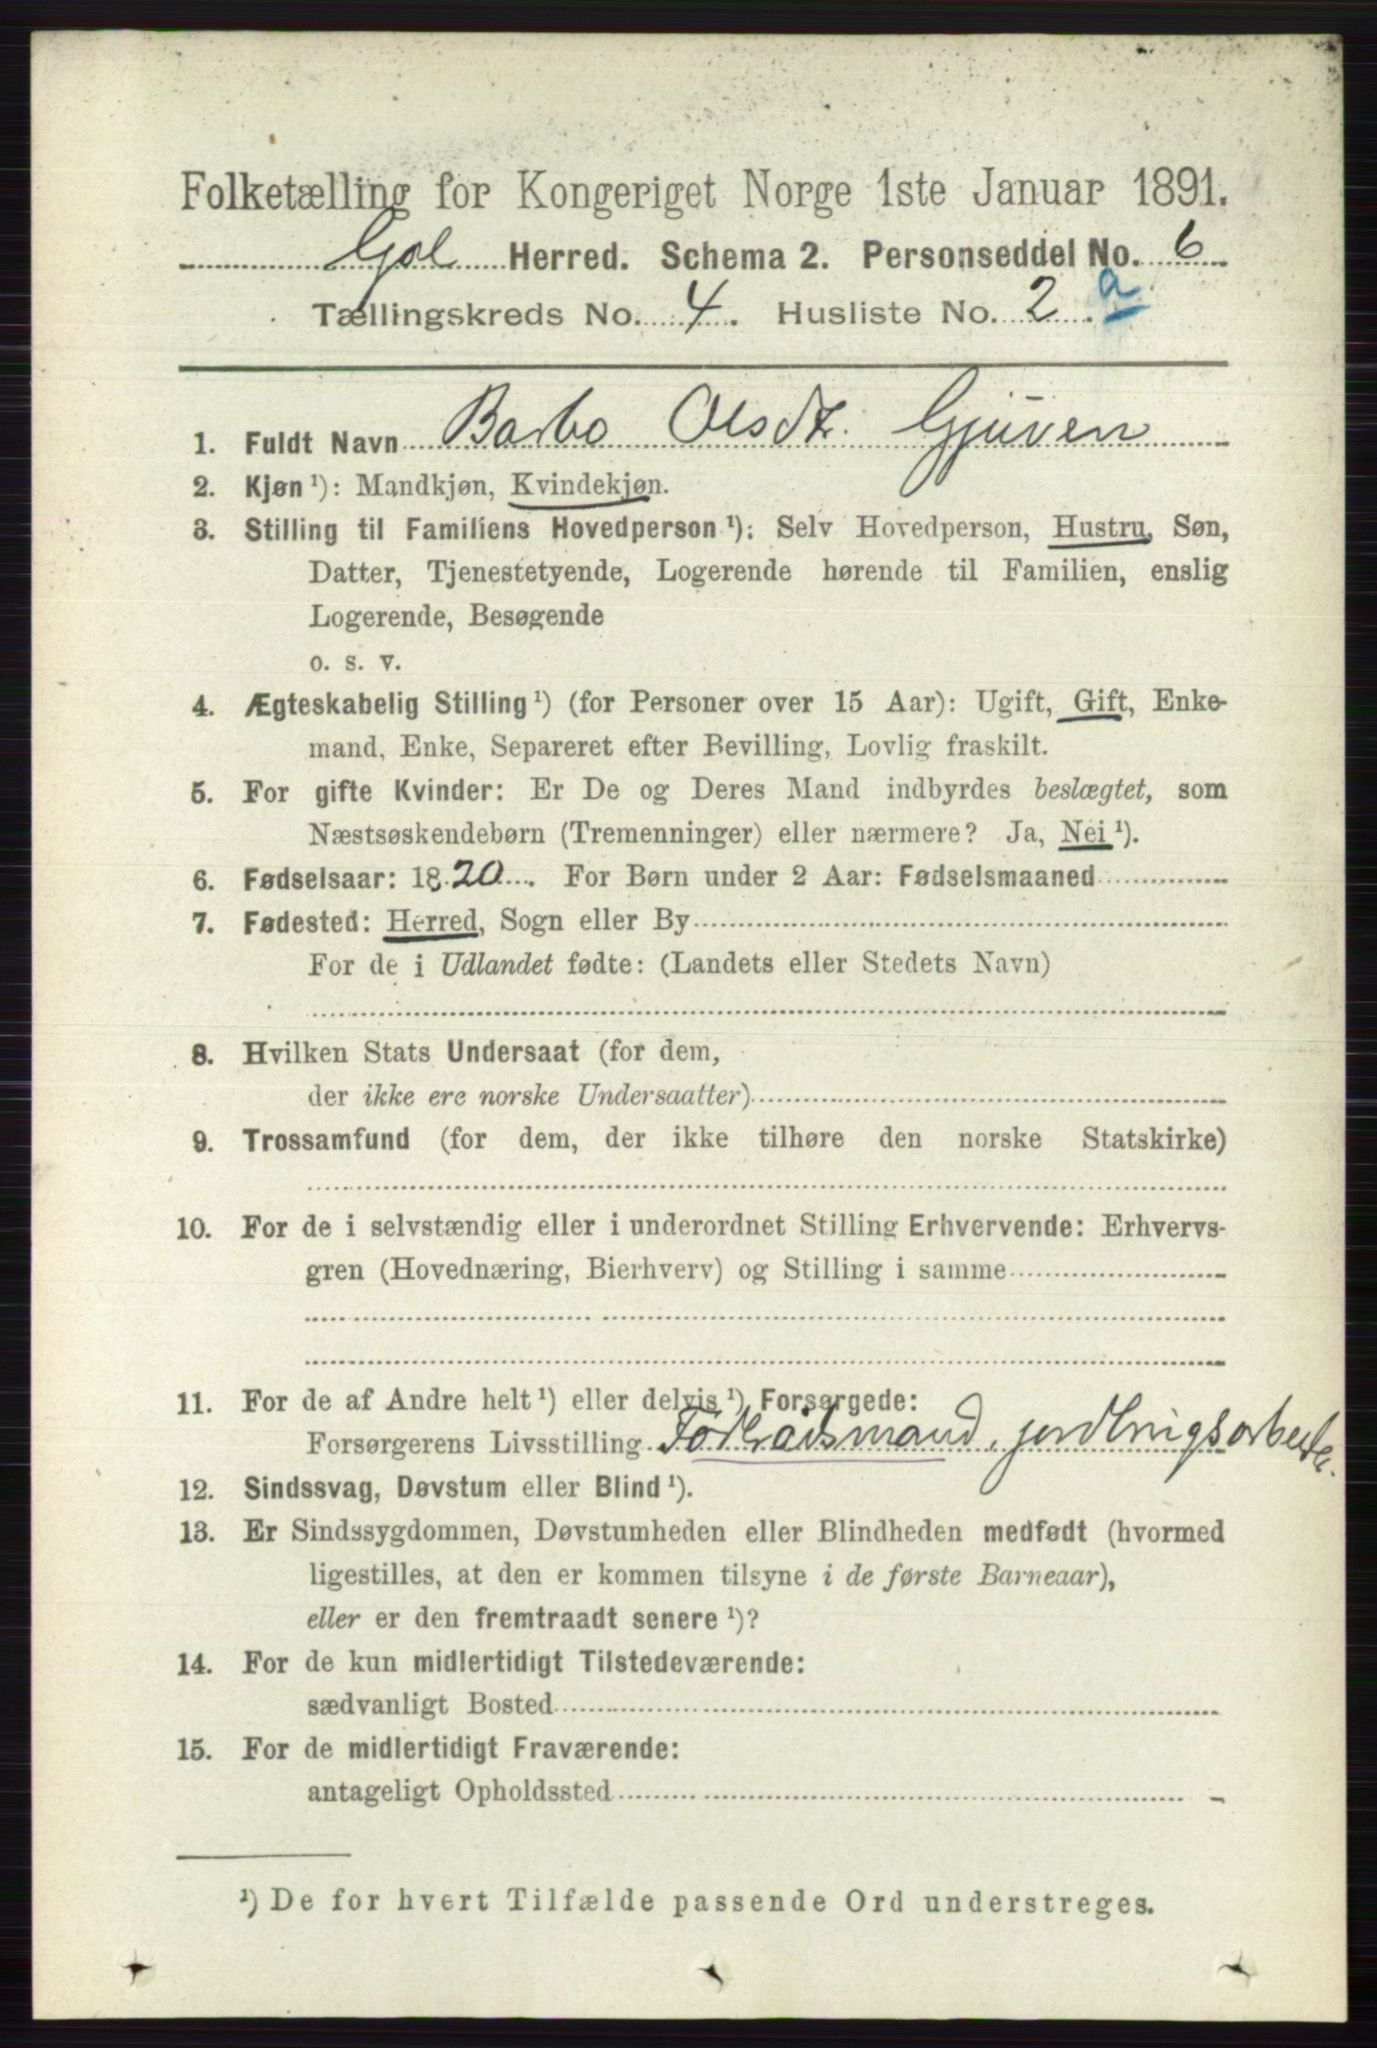 Folketælling for Kongeriget Norge 1ste Januar 1891.
Gol Herred. Schema 2. Personseddel No. 6
Tællingskreds No. 4. Husliste No. 2.a
1. Fuldt Navn Barbo Olsdt. Gjüven
2. Kjøn ¹): Mandkjøn, Kvindekjøn.
3. Stilling til Familiens Hovedperson ¹): Selv Hovedperson, Hustru, Søn,
Datter, Tjenestetyende, Logerende hørende til Familien, enslig
Logerende, Besøgende
o. s. v.
4. Ægteskabelig Stilling ¹) (for Personer over 15 Aar): Ugift, Gift, Enke-
mand, Enke, Separeret efter Bevilling, Lovlig fraskilt.
5. For gifte Kvinder: Er De og Deres Mand indbyrdes beslægtet, som
Næstsøskendebørn (Tremenninger) eller nærmere? Ja, Nei ¹).
6. Fødselsaar: 1820. For Børn under 2 Aar: Fødselsmaaned
7. Fødested: Herred, Sogn eller By
For de i Udlandet fødte: (Landets eller Stedets Navn)
8. Hvilken Stats Undersaat (for dem,
der ikke ere norske Undersaatter)
9. Trossamfund (for dem, der ikke tilhøre den norske Statskirke)
10. For de i selvstændig eller i underordnet Stilling Erhvervende: Erhvervs-
gren (Hovednæring, Bierhverv) og Stilling i samme
11. For de af Andre helt ¹) eller delvis ¹) Forsørgede:
Forsørgerens Livsstilling Föderådsmand, jordbrugsarbeider.
12. Sindssvag, Døvstum eller Blind ¹).
13. Er Sindssygdommen, Døvstumheden eller Blindheden medfødt (hvormed
ligestilles, at den er kommen tilsyne i de første Barneaar),
eller er den fremtraadt senere ¹)?
14. For de kun midlertidigt Tilstedeværende:
sædvanligt Bosted
15. For de midlertidigt Fraværende:
antageligt Opholdssted
¹) De for hvert Tilfælde passende Ord understreges.